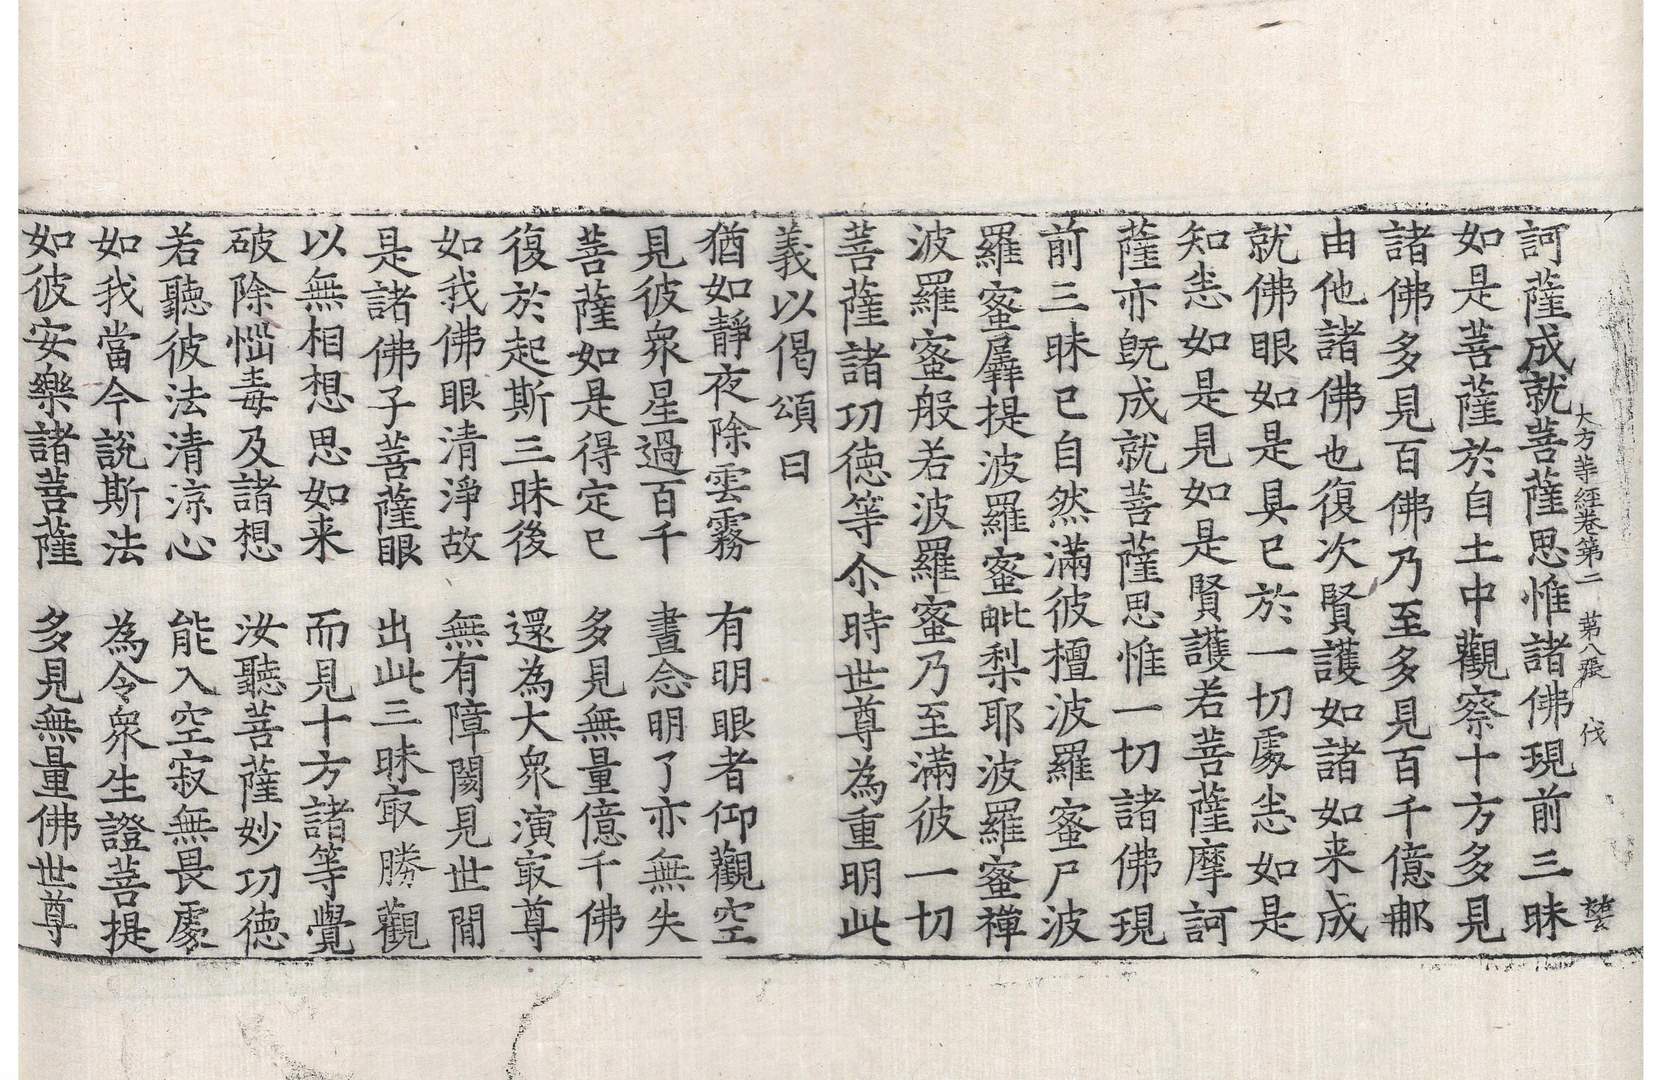 大方等経卷第二　第八張　伐
訶薩成就菩薩思惟諸佛現前三昧
如是菩薩於自土中觀察十方多見
諸佛多見百佛乃至多見百千億𨙻
由他諸佛也復次賢護如諸如来成
就佛眼如是具已於一切處悉如是
知悉如是見如是賢護若菩薩摩訶
薩亦旣成就菩薩思惟一切諸佛現
前三昧已自然滿彼檀波羅蜜尸波
羅蜜羼提波羅蜜毗梨耶波羅蜜禪
波羅蜜般若波羅蜜乃至滿彼一切
菩薩諸功徳等尒時世尊為重明此
義以偈頌曰
猶如靜夜除雲霧　有明眼者仰觀空
見彼衆星過百千　晝念明了亦無失
菩薩如是得定已　多見無量億千佛
復於起斯三昧後　還為大衆演冣尊
如我佛眼清淨故　無有障閡見世間
是諸佛子菩薩眼　出此三昧冣勝觀
以無相想思如来　而見十方諸等覺
破除惱毒及諸想　汝聽菩薩妙功徳
若聽彼法清涼心　能入空寂無畏處
如我當今說斯法　為令衆生證菩提
如彼安樂諸菩薩　多見無量佛世尊